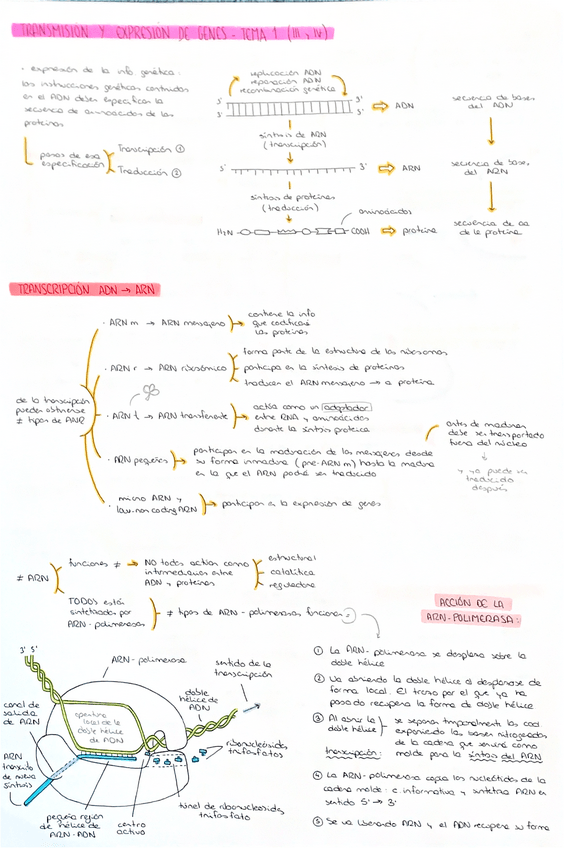 TRANSMISIÓN Y EXPRESIÓN DE GENES - TEMA 1 (III, IV)
· expresión de la info. genética:
las instrucciones genéticas contenidas
en el ADN deben especificar la
secuencia de aminoácidos de las
proteínas
pasos de esa
especificación
Transcripción ①
Traducción ②
replicación ADN
reparación ADN
recombinación genética
5' 3'
3' 5'
ADN
síntesis de ARN
(transcripción)
5' 3'
ARN
síntesis de proteínas
(traducción)
aminoácidos
H2N COOH
proteína
secuencia de bases
del ADN
secuencia de bases
del ARN
secuencia de aa
de la proteína
TRANSCRIPCIÓN ADN → ARN
de la transcripción
pueden obtenerse
≠ tipos de ARN
· ARN m → ARN mensajero
contiene la info
que codificará
las proteínas
· ARN r → ARN ribosómico
forma parte de la estructura de los ribosomas
participa en la síntesis de proteínas
traducen el ARN mensajero → a proteína
· ARN t → ARN transferente
actúa como un adaptador
entre RNA y aminoácidos
durante la síntesis proteica
· ARN pequeños
participan en la maduración de los mensajeros desde
su forma inmadura (pre-ARN m) hasta la madura
en la que el ARN podrá ser traducido
antes de madurar
debe ser transportado
fuera del núcleo
↓
y ya puede ser
traducido
después
· micro ARN y
long non coding ARN
participan en la expresión de genes
≠ ARN
funciones ≠ → NO todos actúan como
intermediarios entre
ADN y proteínas
estructural
catalítica
reguladora
TODOS están
sintetizados por
ARN-polimerasas
≠ tipos de ARN-polimerasas funcionan =
ACCIÓN DE LA
ARN-POLIMERASA:
① La ARN-polimerasa se desplaza sobre la
doble hélice
② Va abriendo la doble hélice al desplazarse de
forma local. El tramo por el que ya ha
pasado recupera la forma de doble hélice
③ Al abrir la
doble hélice
se separan temporalmente las cad.
exponiendo las bases nitrogenadas
de la cadena que servirá como
molde para la síntesis del ARN
transcripción:
④ La ARN-polimerasa copia los nucleótidos de la
cadena molde - c. informativa y sintetiza ARN en
sentido 5' → 3'
⑤ Se va liberando ARN y el ADN recupera su forma
3' 5'
ARN-polimerasa
sentido de la
transcripción
doble
hélice de
ADN
canal de
salida
de ARN
apertura
local de la
doble hélice
de ADN
ribonucleósidos
trifosfatos
ARN
transcrito
de nueva
síntesis
pequeña región
de hélice de
ARN-ADN
centro
activo
túnel de ribonucleósidos
trifosfato